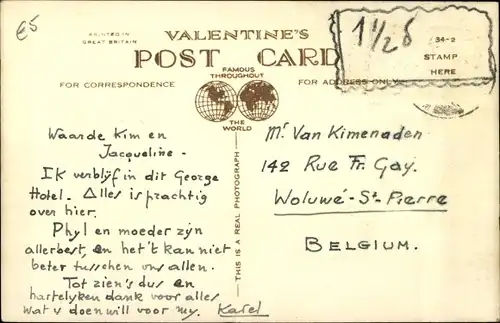 €5
PRINTED IN
GREAT BRITAIN
VALENTINE'S
POST CARD
FAMOUS
THROUGHOUT
THE
WORLD
FOR CORRESPONDENCE
FOR ADDRESS ONLY
1½ d
34-2
STAMP
HERE
THIS IS A REAL PHOTOGRAPH
Waarde Kim en
Jacqueline -
Ik verblijf in dit George
Hotel. Alles is prachtig
over hier.
Phyl en moeder zijn
allerbest, en het 't kan niet
beter tusschen ons allen.
Tot zien's dus en
hartelyken dank voor alles
wat u doen will voor my. Karel
Mr. Van Kimenaden
142 Rue Fr. Gay.
Woluwé-St-Pierre
BELGIUM.